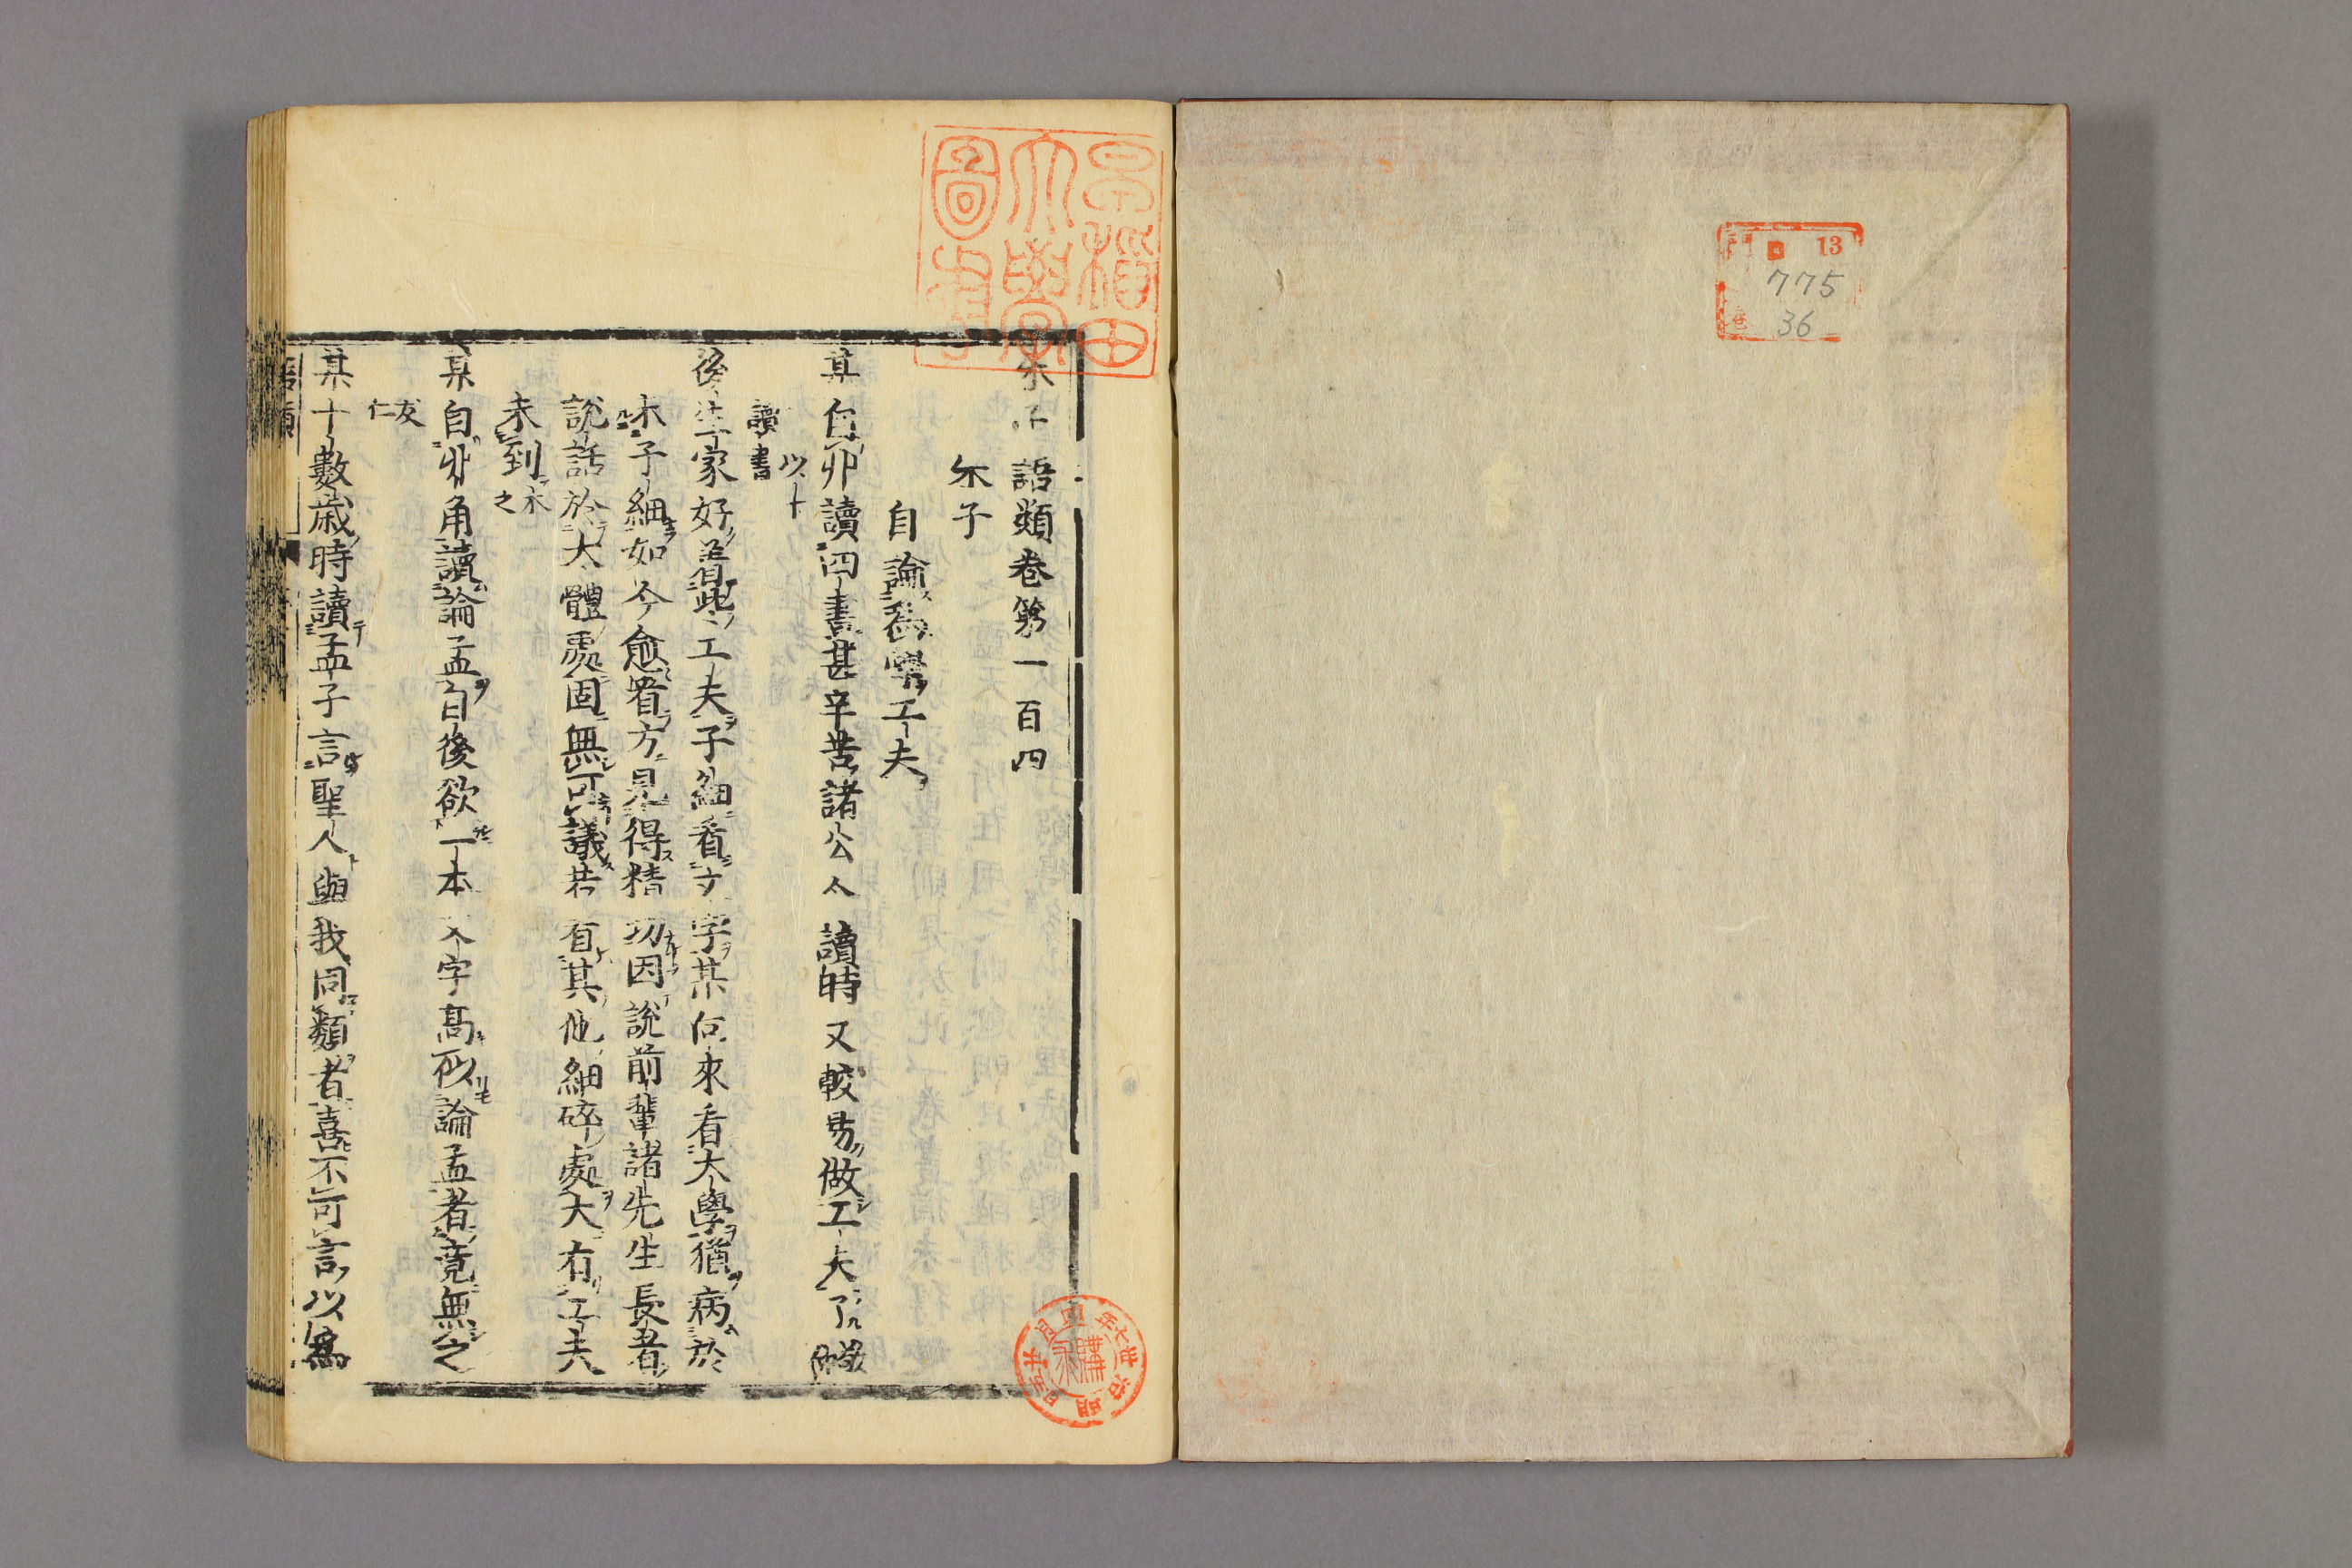 門 13
775
卷 36
早稲田
大學
圖書
朱子語類卷第一百四
朱子
自論爲學工夫
某自丱讀四書甚辛苦諸公今讀時又較易做工夫了
以下
讀書
後生家好著些工夫子細看文字某向來看大學猶病於
未子細如今愈看方見得精切因說前輩諸先生長者
說話於大體處固無可議若看其他細碎處大有工夫
未到
木之
某自丱角讀論孟自後欲一本文字高似論孟者竟無之
友仁
某十數歲時讀孟子言聖人與我同類者喜不可言以爲
語類
明治廿七年
購求